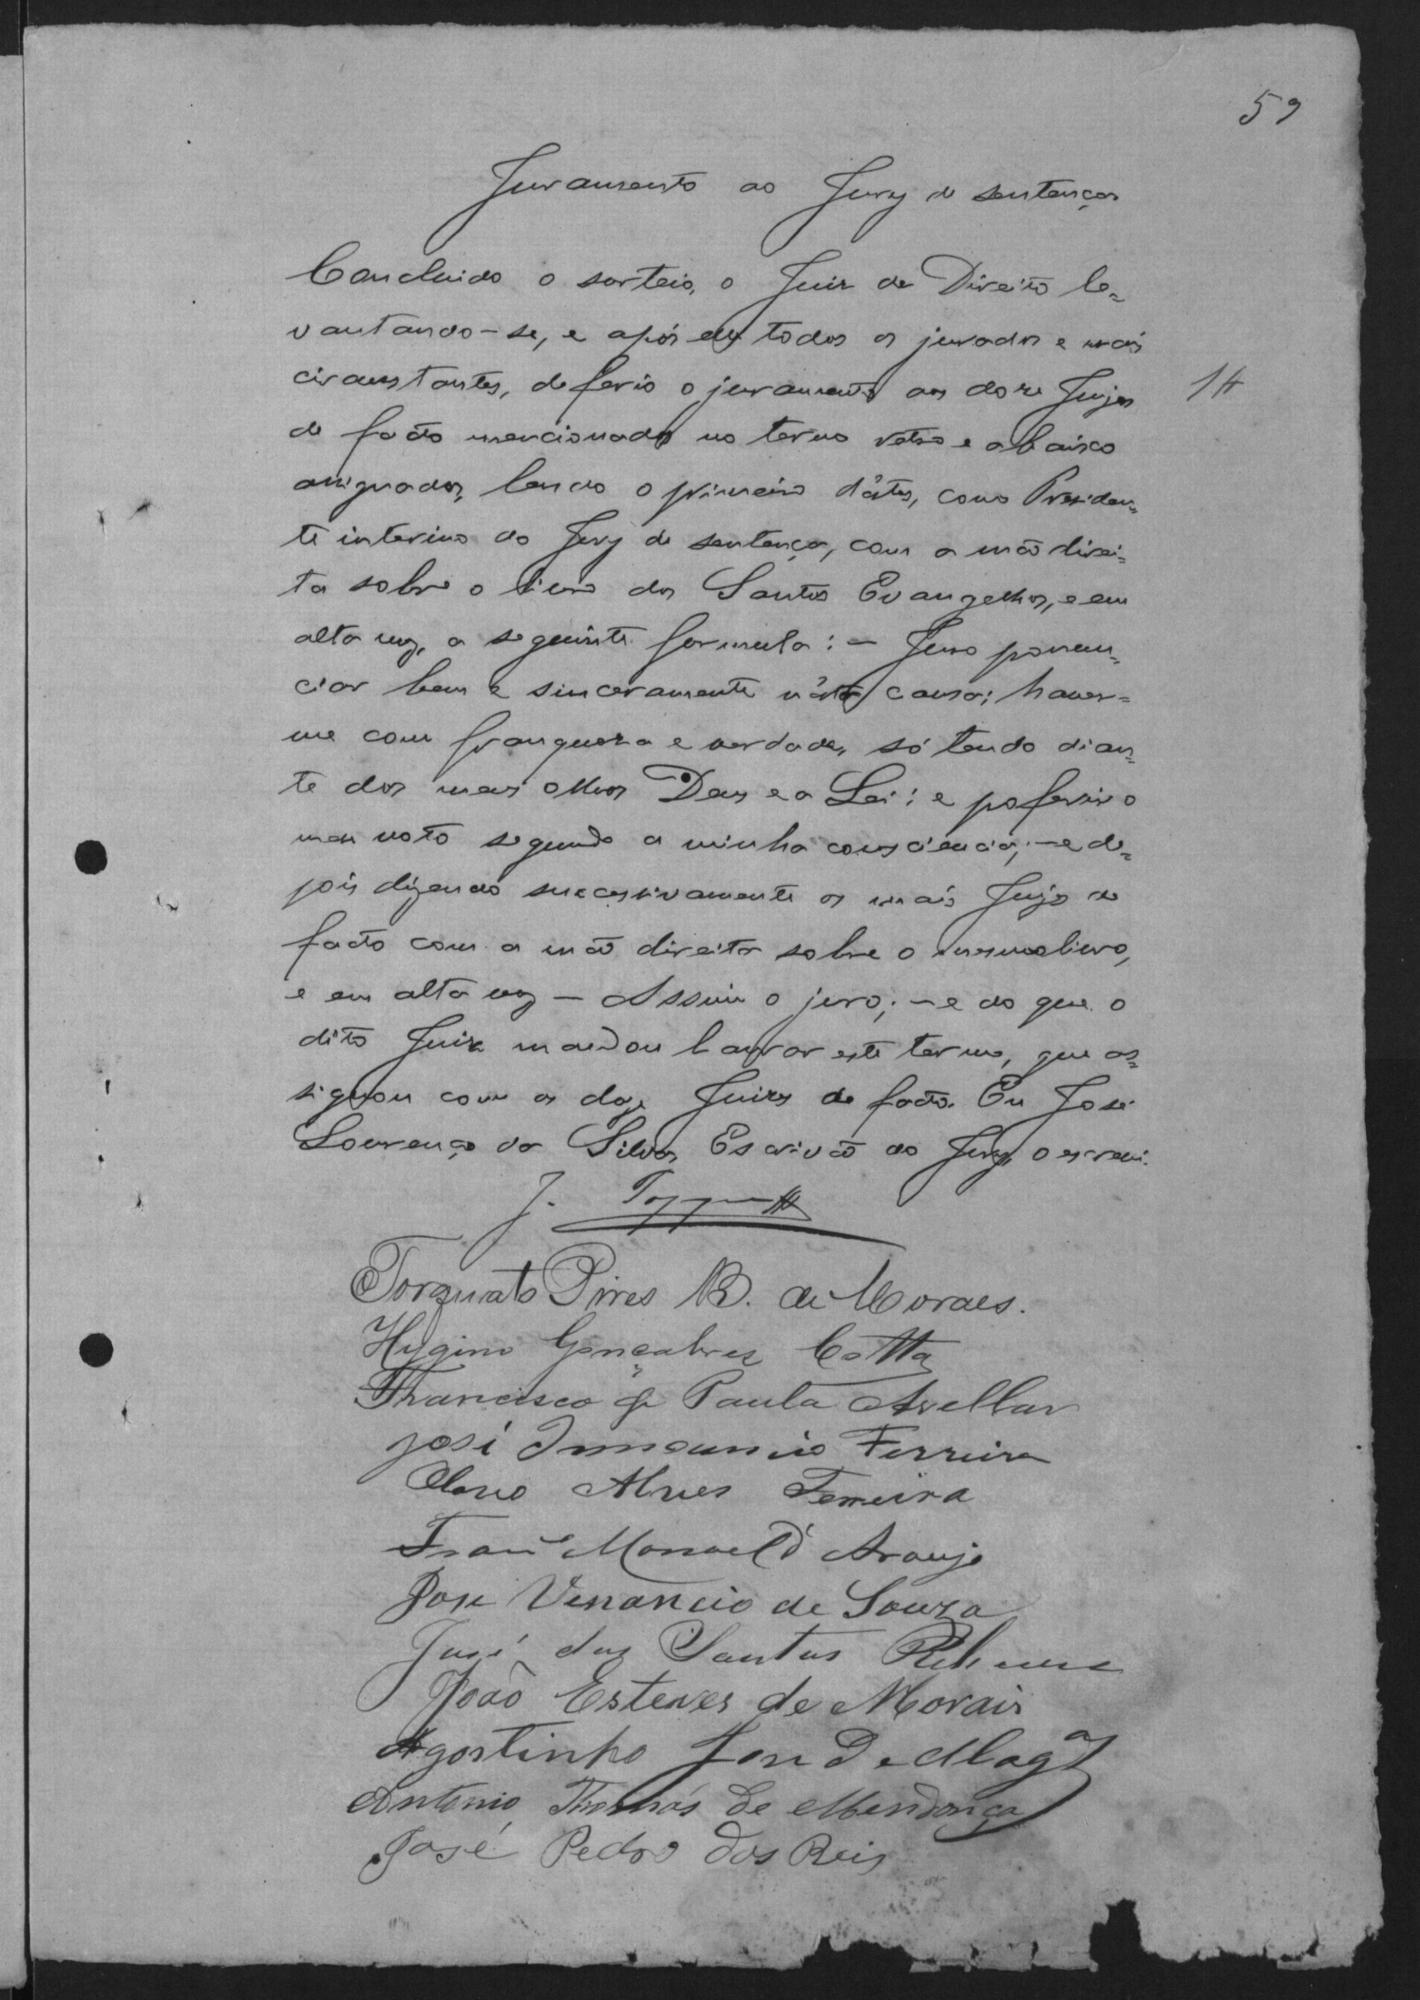 59
Juramento ao Jury de sentença
Concluido o sorteio, o Juiz de Direito le=
vantando-se, e após elle todos os jurados e mais
circunstantes, deferio o juramento aos doze Juizes
14
de facto mencionados no termo retro e abaixo
assignados, lendo o primeiro d'estes, como Presiden=
te interino do Jury de sentença, com a mão direi=
ta sobre o livro dos Santos Evangelhos, e em
alta voz, a seguinte formula: - Juro pronun=
ciar bem e sinceramente n'esta causa; haver=
me com franqueza e verdade, só tendo dian=
te dos meus olhos Deus e a Lei; e proferir o
meu voto segundo a minha consciencia; - e de=
pois dizendo successivamente os mais Juizes de
facto com a mão direita sobre o mesmo livro,
e em alta voz - Assim o juro; - e do que o
dito Juiz mandou lavrar este termo, que as=
signou com os doze Juizes de facto. Eu José
Lourenço da Silva, Escrivão do Jury, o escrevi.
J.
Torquato Pires B. de Moraes.
Hygino Gonçalves Cotta
Francisco de Paula Avellar
José Innocencio Ferreira
Alves Ferreira
Franco Manoel d' Araujo
Jose Venancio de Souza
José dos Santos
João Esteves de Morais
Agostinho José de Magas
Antonio Thomás de Mendonça
José Pedro dos Reis